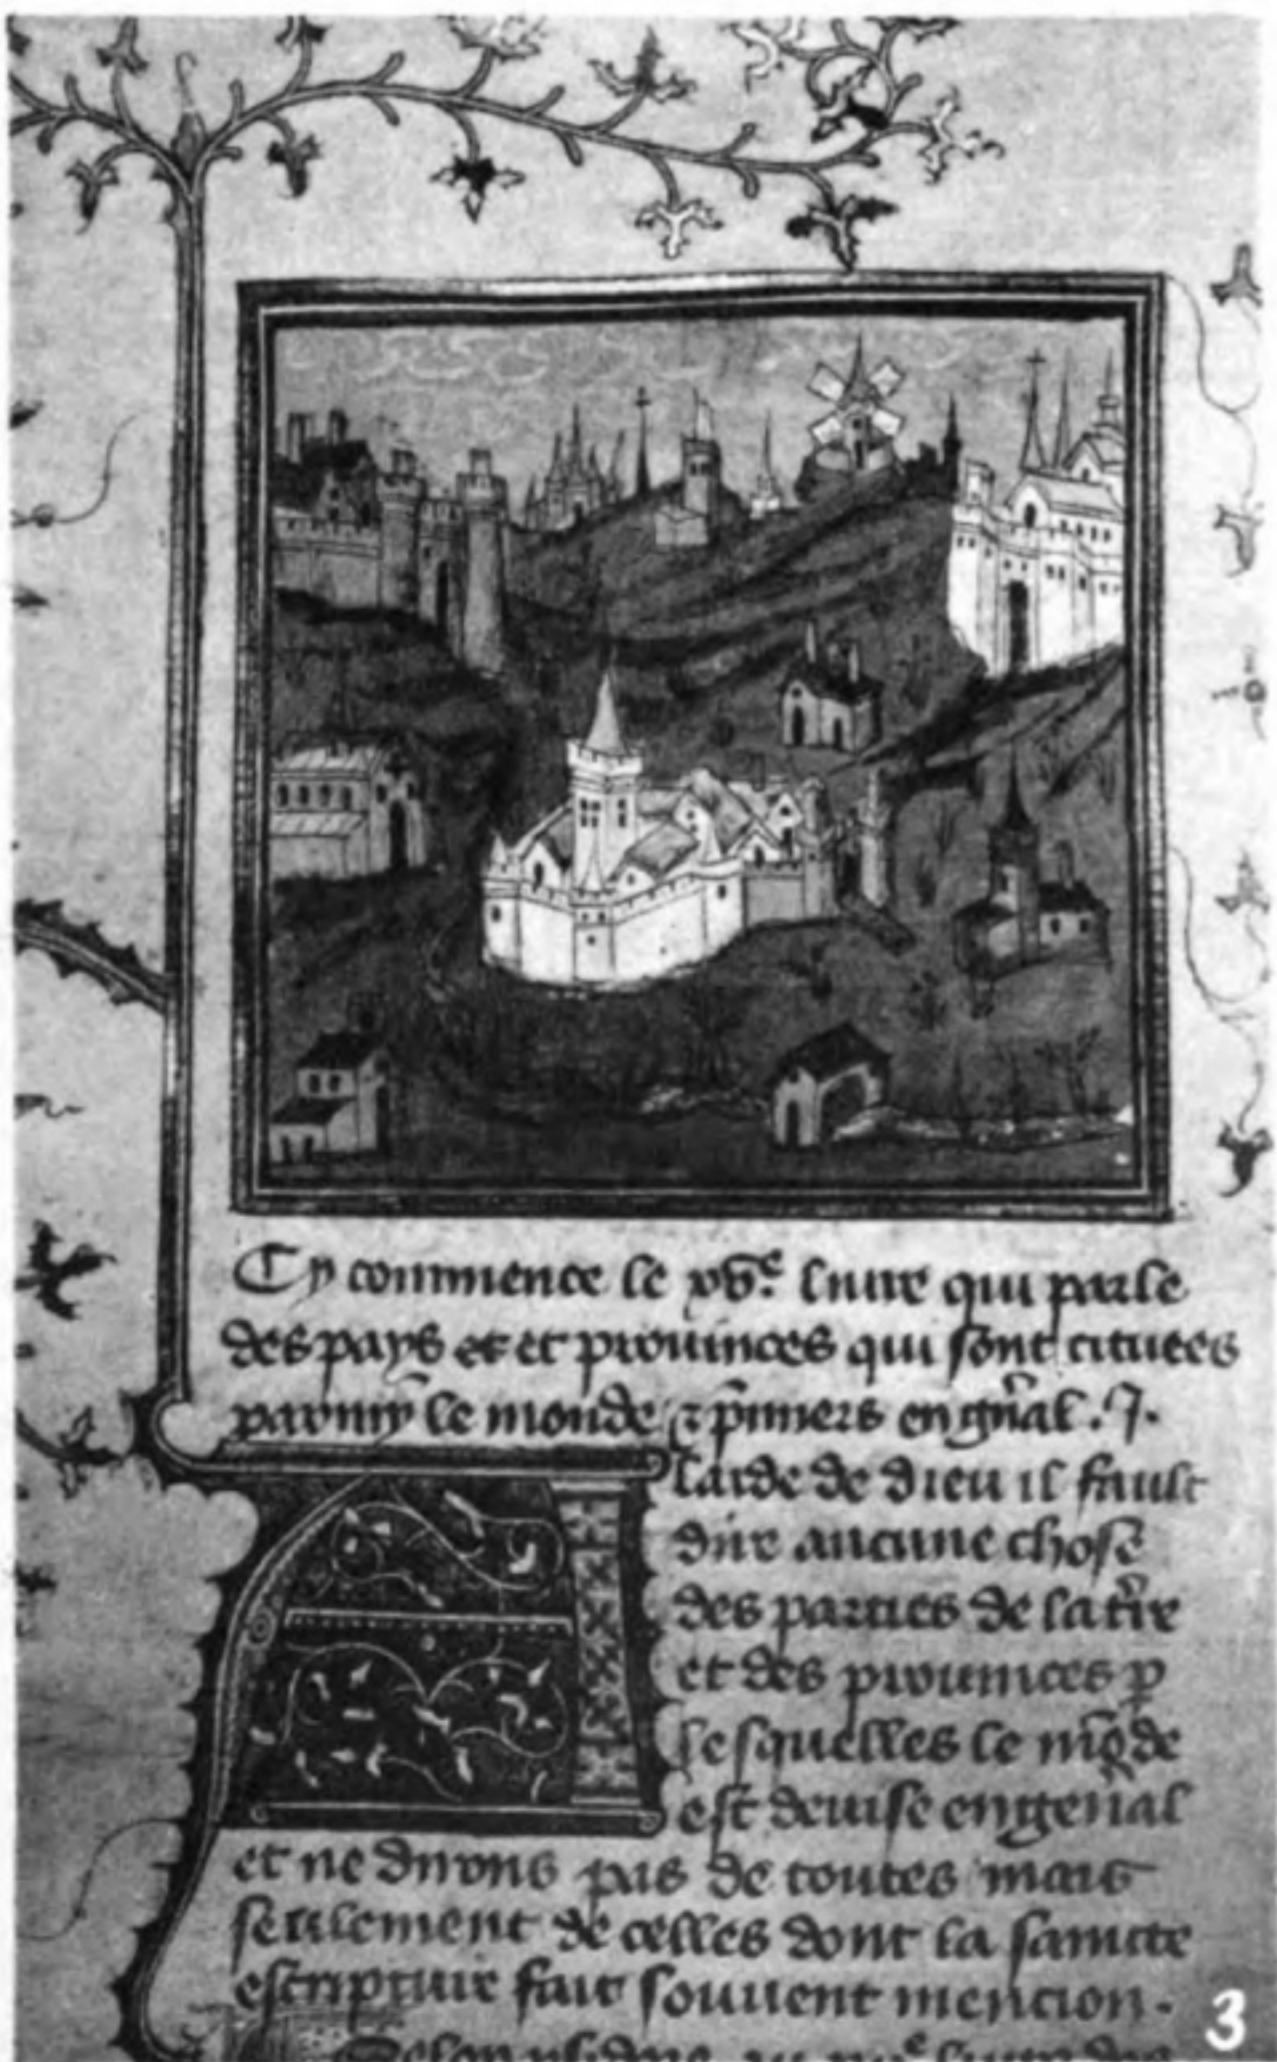 Cy commence le xv.e liure qui parle
des pays et et prouinces qui sont cituees
parmy le monde ⁊ p̄miers en gn̄al. I.
A laide de dieu il fault
dire aucune chose
des parties de la t̄re
et des prouinces p
lesquelles le mōde
est deuise en general
et ne dirons pas de toutes mais
seulement de celles dont la saincte
escripture fait souuent mencion.
Selon ysidore au xv.e liure des
3